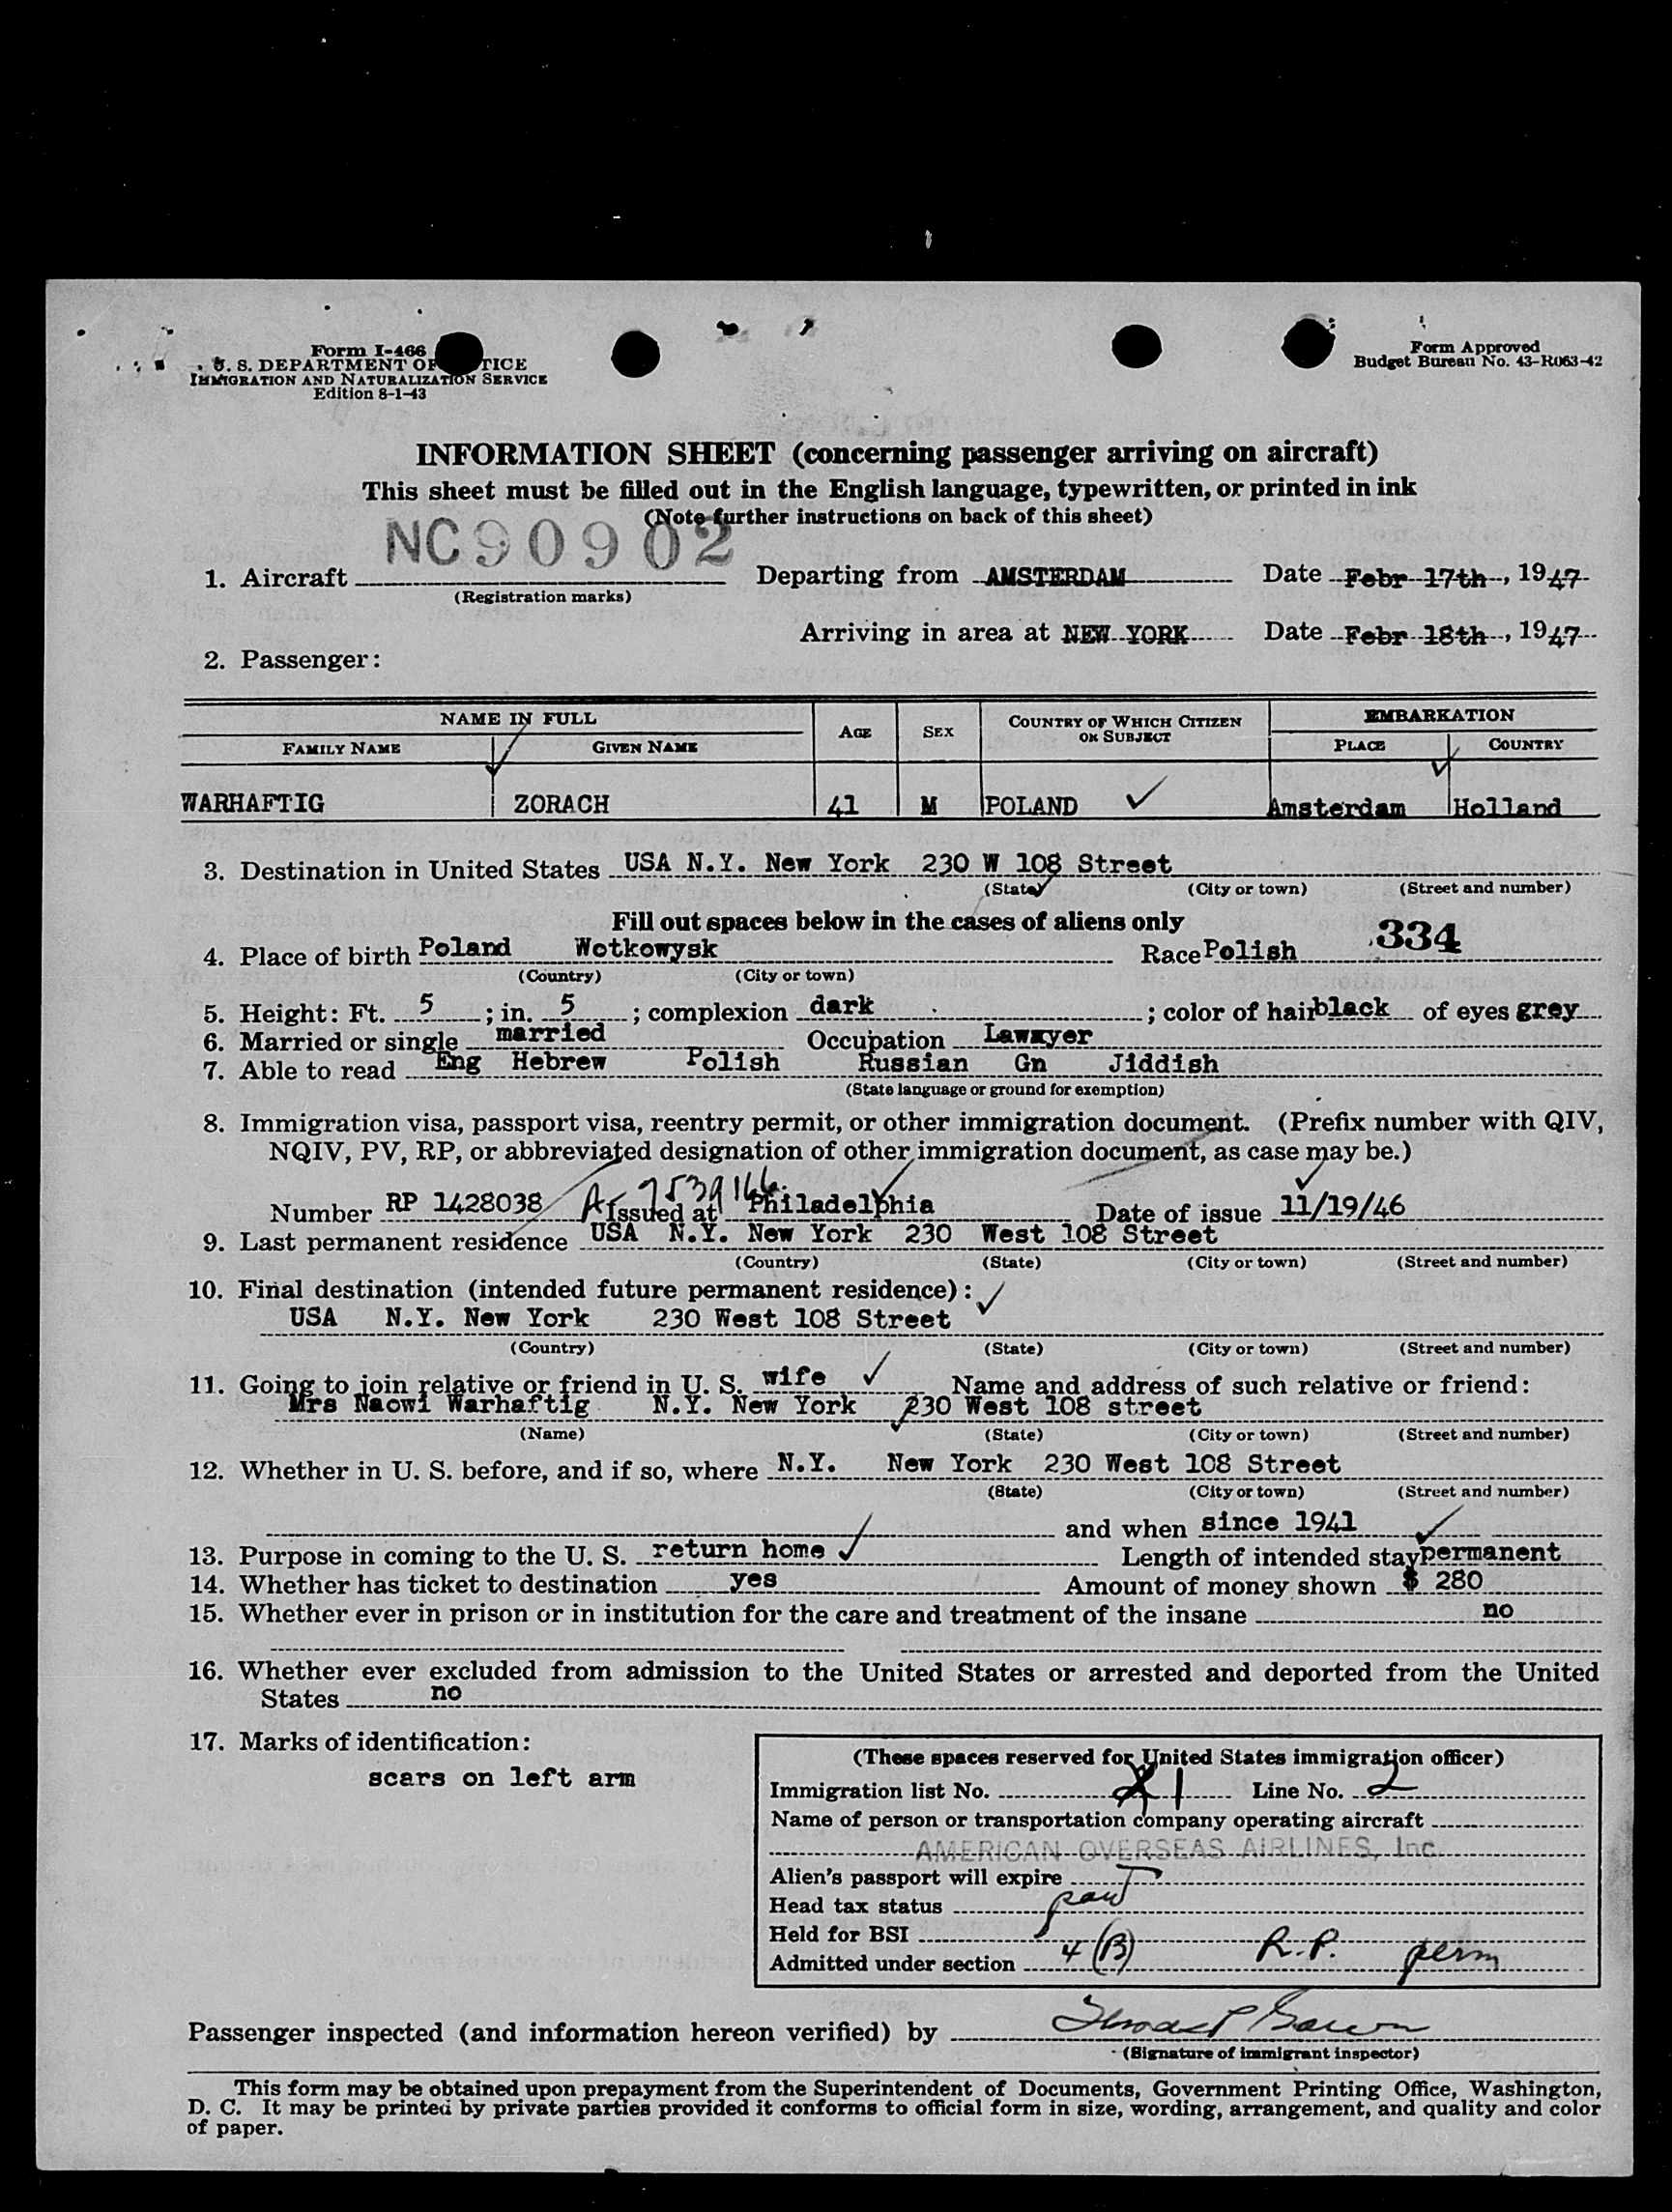 Form I-466
U. S. DEPARTMENT OF TICE
IMMIGRATION AND NATURALIZATION SERVICE
Edition 8-1-43
Form Approved
Budget Bureau No. 43-R063-42
INFORMATION SHEET (concerning passenger arriving on aircraft)
This sheet must be filled out in the English language, typewritten, or printed in ink
(Note further instructions on back of this sheet)
NC90902
1. Aircraft Departing from AMSTERDAM Date Febr 17th, 1947
(Registration marks)
Arriving in area at NEW YORK Date Febr 18th, 1947
2. Passenger:
NAME IN FULL AGE SEX COUNTRY OF WHICH CITIZEN OR SUBJECT EMBARKATION
FAMILY NAME GIVEN NAME PLACE COUNTRY
WARHAFTIG ZORACH 41 M POLAND Amsterdam Holland
3. Destination in United States USA N.Y. New York 230 W 108 Street
(State) (City or town) (Street and number)
Fill out spaces below in the cases of aliens only
334
4. Place of birth Poland Wotkowysk Race Polish
(Country) (City or town)
5. Height: Ft. 5; in. 5; complexion dark; color of hair black of eyes grey
6. Married or single married Occupation Lawxyer
7. Able to read Eng Hebrew Polish Russian Gn Jiddish
(State language or ground for exemption)
8. Immigration visa, passport visa, reentry permit, or other immigration document. (Prefix number with QIV,
NQIV, PV, RP, or abbreviated designation of other immigration document, as case may be.)
Number RP 1428038 Issued at Philadelphia Date of issue 11/19/46
9. Last permanent residence USA N.Y. New York 230 West 108 Street
(Country) (State) (City or town) (Street and number)
10. Final destination (intended future permanent residence):
USA N.Y. New York 230 West 108 Street
(Country) (State) (City or town) (Street and number)
11. Going to join relative or friend in U. S. wife Name and address of such relative or friend:
Mrs Naowi Warhaftig N.Y. New York 230 West 108 street
(Name) (State) (City or town) (Street and number)
12. Whether in U. S. before, and if so, where N.Y. New York 230 West 108 Street
(State) (City or town) (Street and number)
and when since 1941
13. Purpose in coming to the U. S. return home Length of intended stay permanent
14. Whether has ticket to destination yes Amount of money shown $ 280
15. Whether ever in prison or in institution for the care and treatment of the insane no
16. Whether ever excluded from admission to the United States or arrested and deported from the United
States no
17. Marks of identification:
scars on left arm
(These spaces reserved for United States immigration officer)
Immigration list No. 1 Line No. 2
Name of person or transportation company operating aircraft
AMERICAN OVERSEAS AIRLINES, Inc.
Alien's passport will expire
Head tax status
Held for BSI
Admitted under section 4 (B) R.P. perm
Passenger inspected (and information hereon verified) by
(Signature of immigrant inspector)
This form may be obtained upon prepayment from the Superintendent of Documents, Government Printing Office, Washington,
D. C. It may be printed by private parties provided it conforms to official form in size, wording, arrangement, and quality and color
of paper.